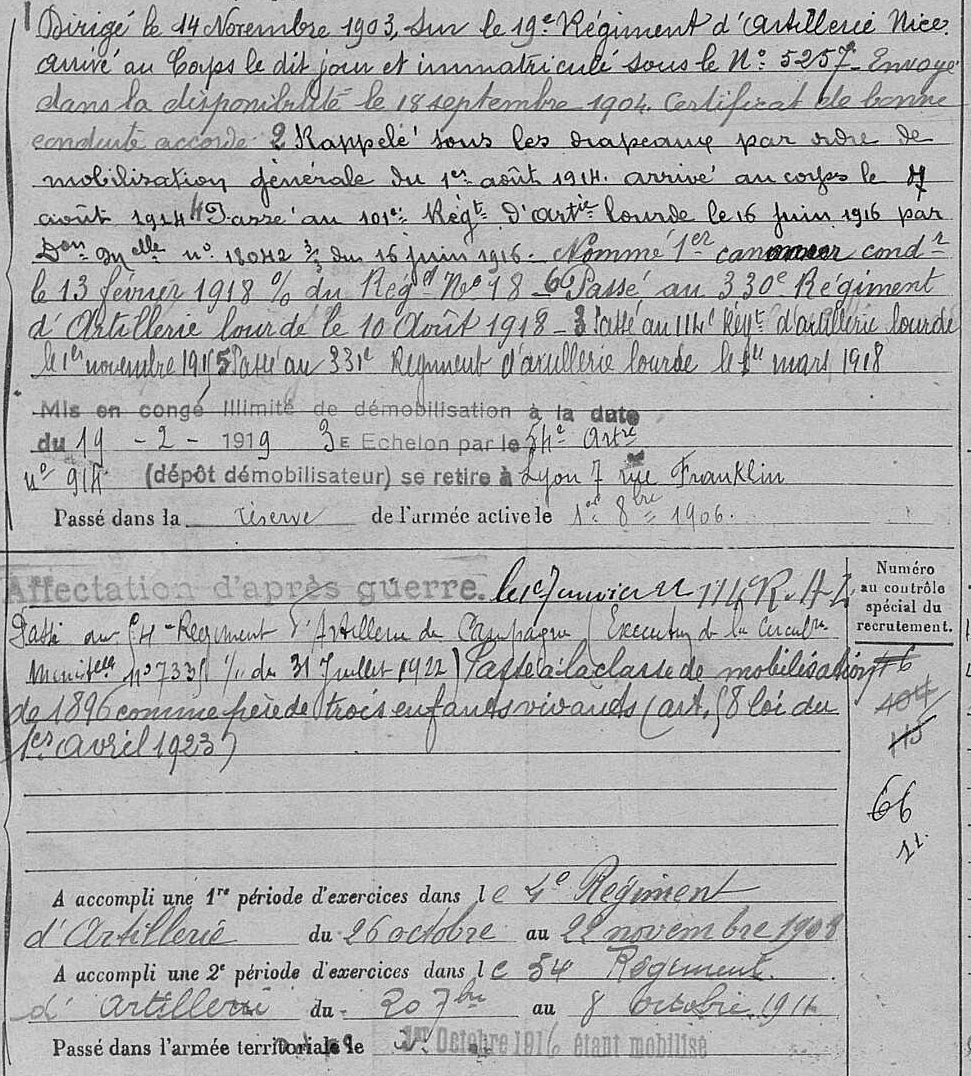 Dirigé le 14 Novembre 1903, sur le 19e Régiment d'Artillerie Nice.
arrivé au Corps le dit jour et immatriculé sous le No: 5257 Envoyé
dans la disponibilité le 18 septembre 1904. Certificat de bonne
conduite accordé. 2 Rappelé sous les drapeaux par ordre de
mobilisation générale du 1er août 1914. arrivé au corps le 4
août 1914 4 Passé au 101e Régt d'artie lourde le 16 juin 1916 par
Don Mielle no 18042 3/3 du 16 juin 1916. Nommé 1er canonnier condr
le 13 février 1918 % du Régt No 18 6 Passé au 330e Régiment
d'Artillerie lourde le 10 Août 1918 - 3 Passé au 114e Régt d'artillerie lourde
le 1er novembre 1915 5 Passé au 331e Régiment d'artillerie lourde le 1er mars 1918
Mis en congé illimité de démobilisation à la date
du 19 - 2 - 1919 3E Echelon par le 54e Artie
no 914 (dépôt démobilisateur) se retire à Lyon 7 rue Franklin
Passé dans la réserve de l'armée active le 1er 8bre 1906.
Affectation d'après guerre. le 1er Janvier 114e R.A.L
Passé au Régiment d'Artillerie de Campagne (Exécution de la Circulre
Ministelle no 7335 1/11 du 31 Juillet 1922) Passé à la classe de mobilisation
de 1896 comme père de trois enfants vivants (art. 58 loi du
1er Avril 1923)
Numéro
au contrôle
spécial du
recrutement.
104
115
66
11.
A accompli une 1re période d'exercices dans le 4e Régiment
d'Artillerie du 26 octobre au 22 novembre 1908
A accompli une 2e période d'exercices dans le 54 Régiment.
d'Artillerie du 20 7bre au 8 octobre 1911
Passé dans l'armée territoriale le 1er Octobre 1916 étant mobilisé